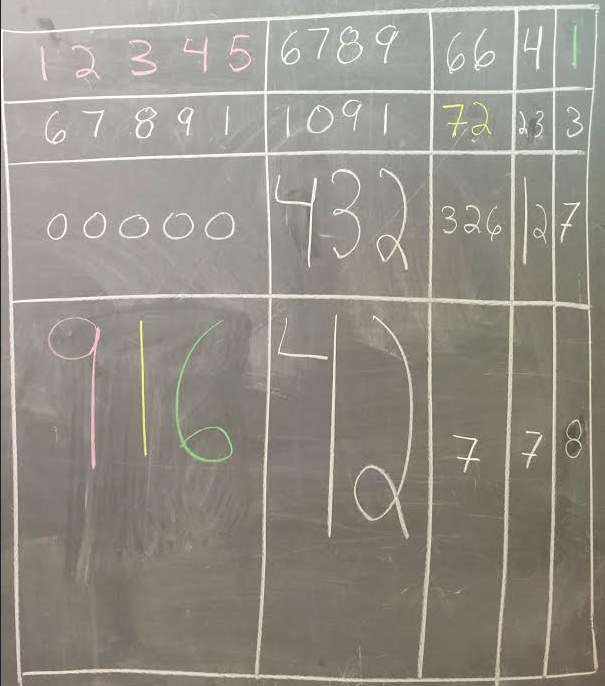 12345 6789 66 4 1
67891 1091 72 23 3
00000 432 326 12 7
916 42 7 7 8